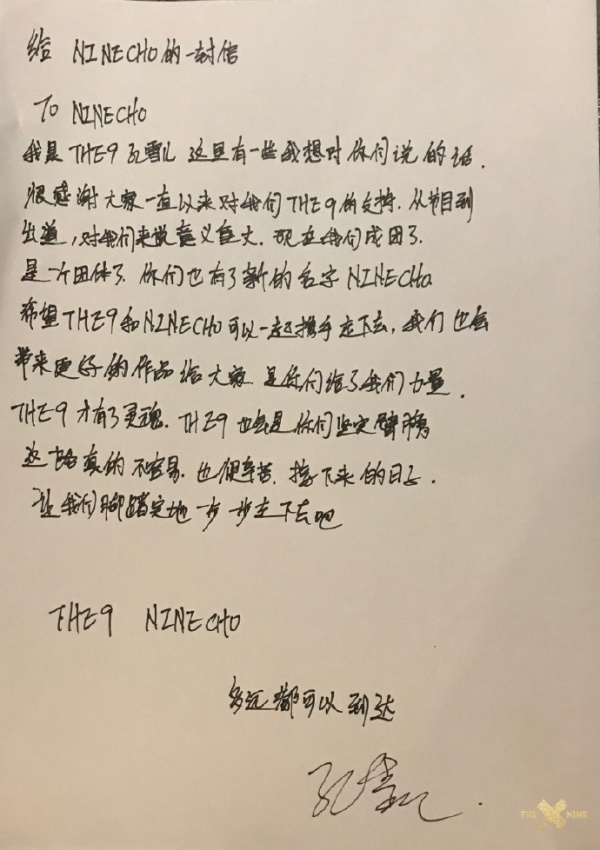 给 NINECHO的一封信
To NINECHO
我是THE9 孔雪儿 这里有一些我想对你们说的话.
很感谢大家一直以来对我们THE9的支持.从节目到
出道,对我们来说意义巨大.现在我们成团了.
是一个团体了.你们也有了新的名字NINECHO.
希望THE9和NINECHO可以一起携手走下去,我们也会
带来更好的作品给大家.是你们给了我们力量.
THE9才有了灵魂.THE9也会是你们坚定臂膀
这一路真的不容易.也很辛苦.接下来的日子.
让我们脚踏实地一步一步走下去吧
THE9 NINECHO
多远都可以到达
孔雪儿.
THE NINE